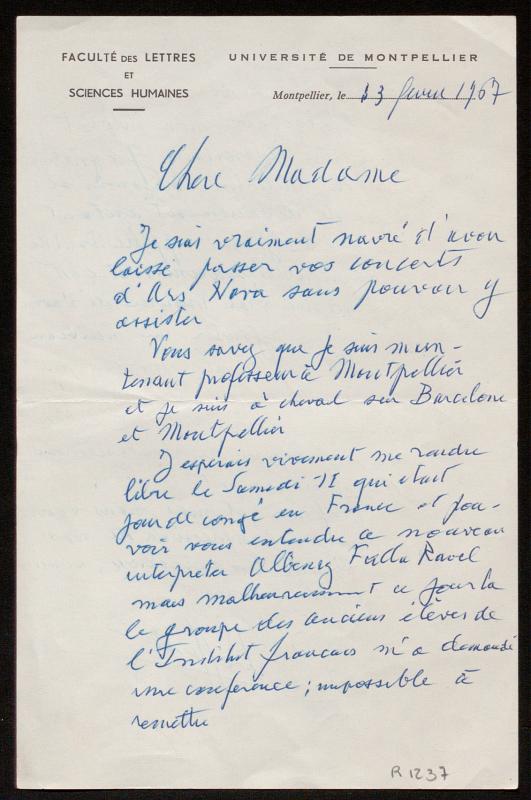 FACULTÉ DES LETTRES
ET
SCIENCES HUMAINES
UNIVERSITÉ DE MONTPELLIER
Montpellier, le 13 février 1967
Chere Madame
Je suis vraiment navré d'avoir
laissé passer vos concerts
d'Ars Nova sans pouvoir y
assister
Vous savez que je suis main-
tenant professeur à Montpellier
et je suis à cheval sur Barcelone
et Montpellier
J'esperais vivement me rendre
libre le Samedi 11 qui était
jour de congé en France et pou-
voir vous entendre a nouveau
interpreter Albeniz Falla Ravel
mais malheureusement ce jour la
le groupe des anciens élèves de
l'Institut français m'a demandé
une conférence ; impossible à
remettre
R 1237